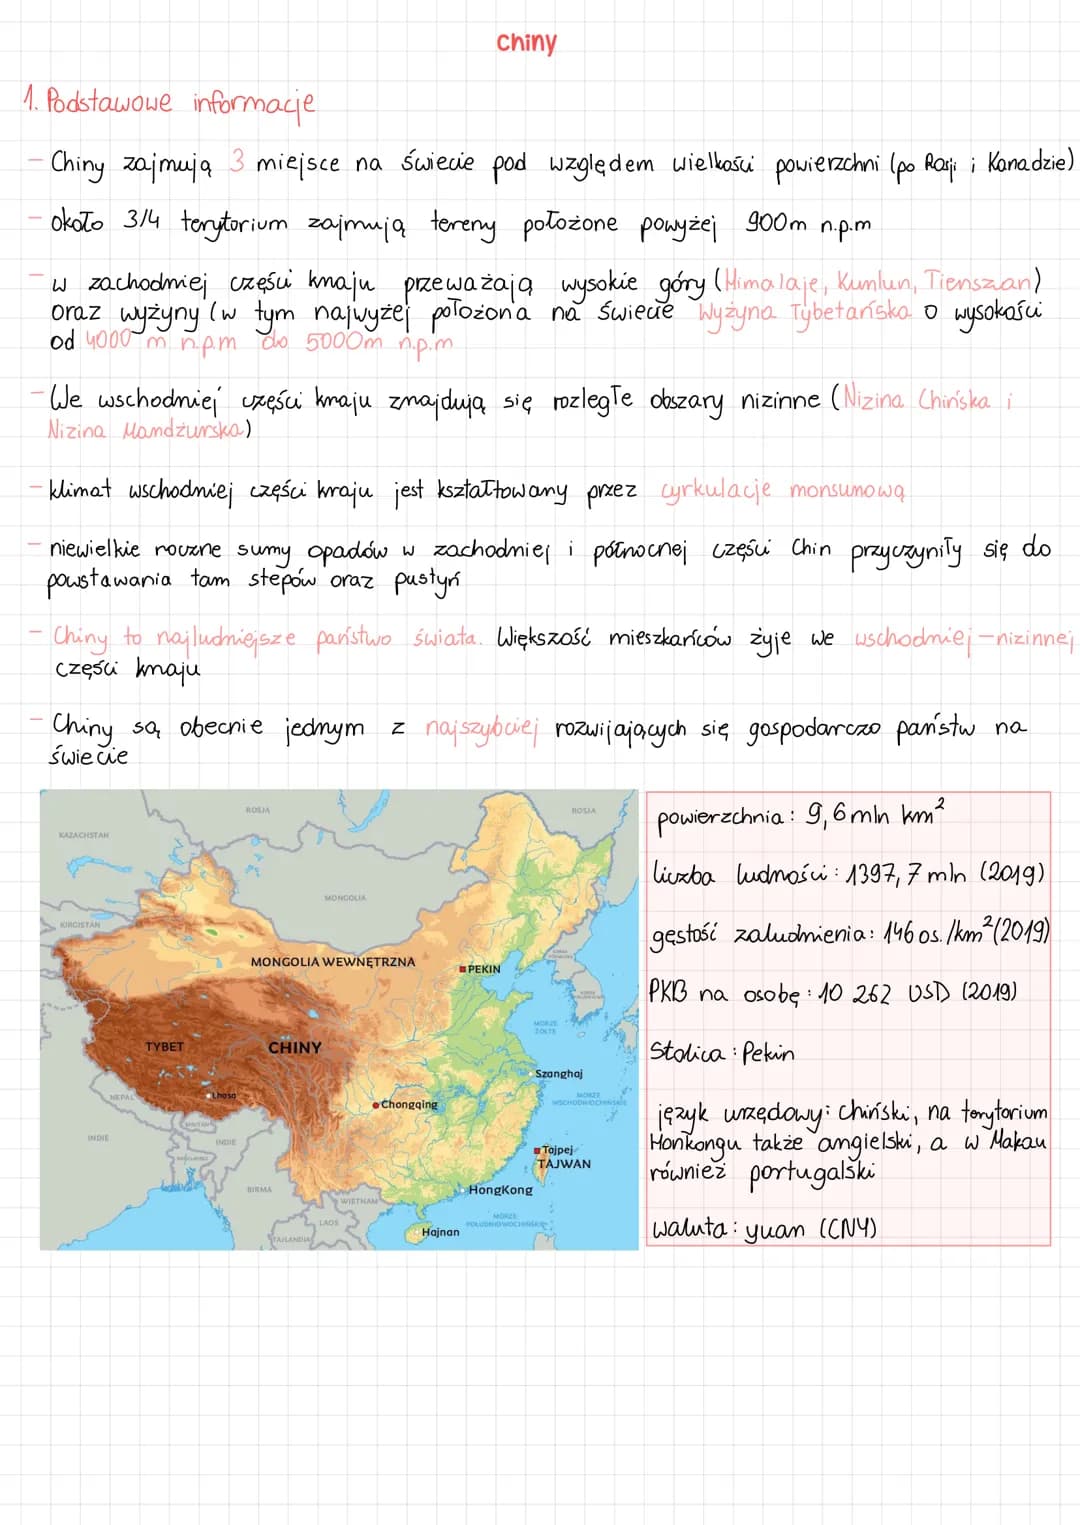 Chiny
1. Podstawowe informacje
- Chiny zajmują 3 miejsce na świecie pod względem wielkości powierzchni (po Rosji i Kanadzie)
- około 3/4 terytorium zajmują tereny położone powyżej 900m n.p.m
- w zachodniej części kraju przeważają wysokie góry (Himalaje, Kunlun, Tienszan)
oraz wyżyny (w tym najwyżej położona na świecie Wyżyna Tybetańska o wysokości
od 4000 m n.p.m do 5000m n.p.m
- We wschodniej części kraju znajdują się rozległe obszary nizinne (Nizina Chińska i
Nizina Mandżurska)
- klimat wschodniej części kraju jest kształtowany przez cyrkulacje monsunową
- niewielkie roczne sumy opadów w zachodniej i północnej części Chin przyczyniły się do
powstawania tam stepów oraz pustyń
- Chiny to najludniejsze państwo świata. Większość mieszkańców żyje we wschodniej-nizinnej
części kraju
- Chiny są obecnie jednym z najszybciej rozwijających się gospodarczo państw na
świecie
ROSJA
ROSJA
KAZACHSTAN
MONGOLIA
KIRGISTAN
MONGOLIA WEWNĘTRZNA
PEKIN
MORZE
ŻÓŁTE
TYBET
CHINY
Szanghaj
NEPAL
Lhasa
Chongqing
MORZE
WSCHODNIOCHIŃSKIE
INDIE
INDIE
Tajpej
TAJWAN
BIRMA
WIETNAM
HongKong
LAOS
MORZE
POŁUDNIOWOCHIŃSKIE
Hajnan
TAJLANDIA
powierzchnia: 9,6 mln km²
liczba ludności: 1397,7 mln (2019)
gęstość zaludnienia: 146 os./km² (2019)
PKB na osobę: 10 262 USD (2019)
Stolica: Pekin
język urzędowy: chiński, na terytorium
Honkongu także angielski, a w Makau
również portugalski
waluta: yuan (CNY)